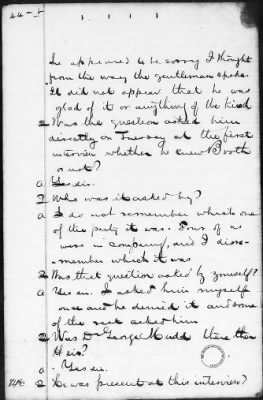 44-5
he appeared to be sorry I thought
from the way the gentleman spoke.
It did not appear that he was
glad of it or anything of the kind
Q Was the question asked him
directly on Tuesday at the first
interview whether he knew Booth
or not?
A Yes sir.
Q Who was it asked by?
A I do not remember which one
of the party it was. Four of us
were in company, and I dis
-member which it was
Q Was that question asked by yourself?
A Yes sir. I asked him myself
once and he denied it and some
of the rest asked him
Q Was Dr George Mudd there then
Heis?
A. Yes sir.
Q He was present at this interview?